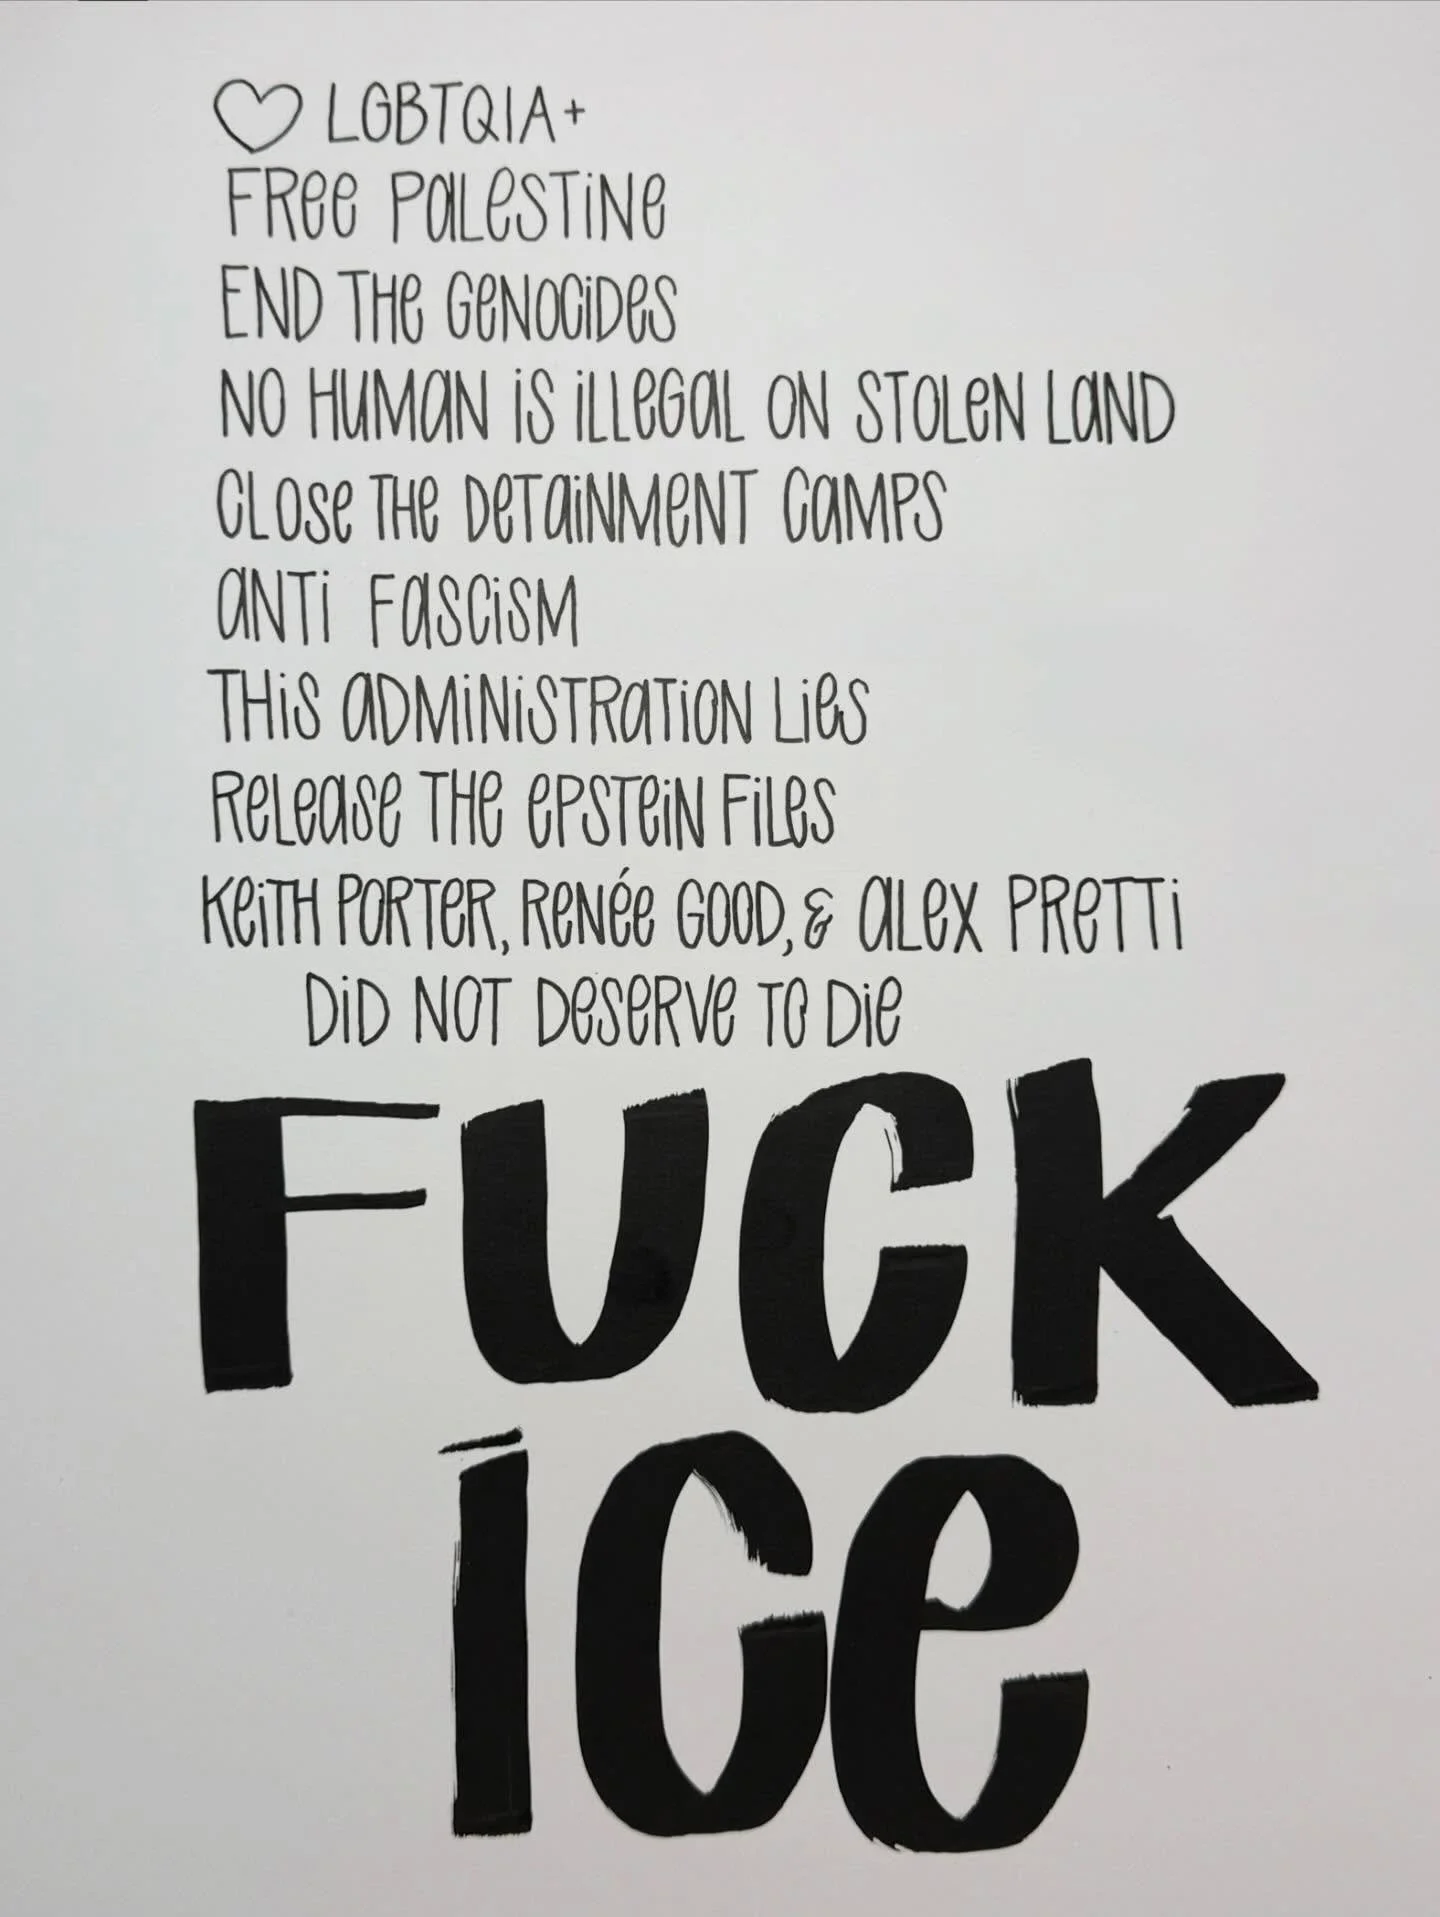 ♡ LGBTQIA+
FREE PALESTINE
END THE GENOCIDES
NO HUMAN IS ILLEGAL ON STOLEN LAND
CLOSE THE DETAINMENT CAMPS
ANTI FASCISM
THIS ADMINISTRATION LIES
RELEASE THE EPSTEIN FILES
KEITH PORTER, RENÉE GOOD, & ALEX PRETTI
DID NOT DESERVE TO DIE
FUCK
ICE